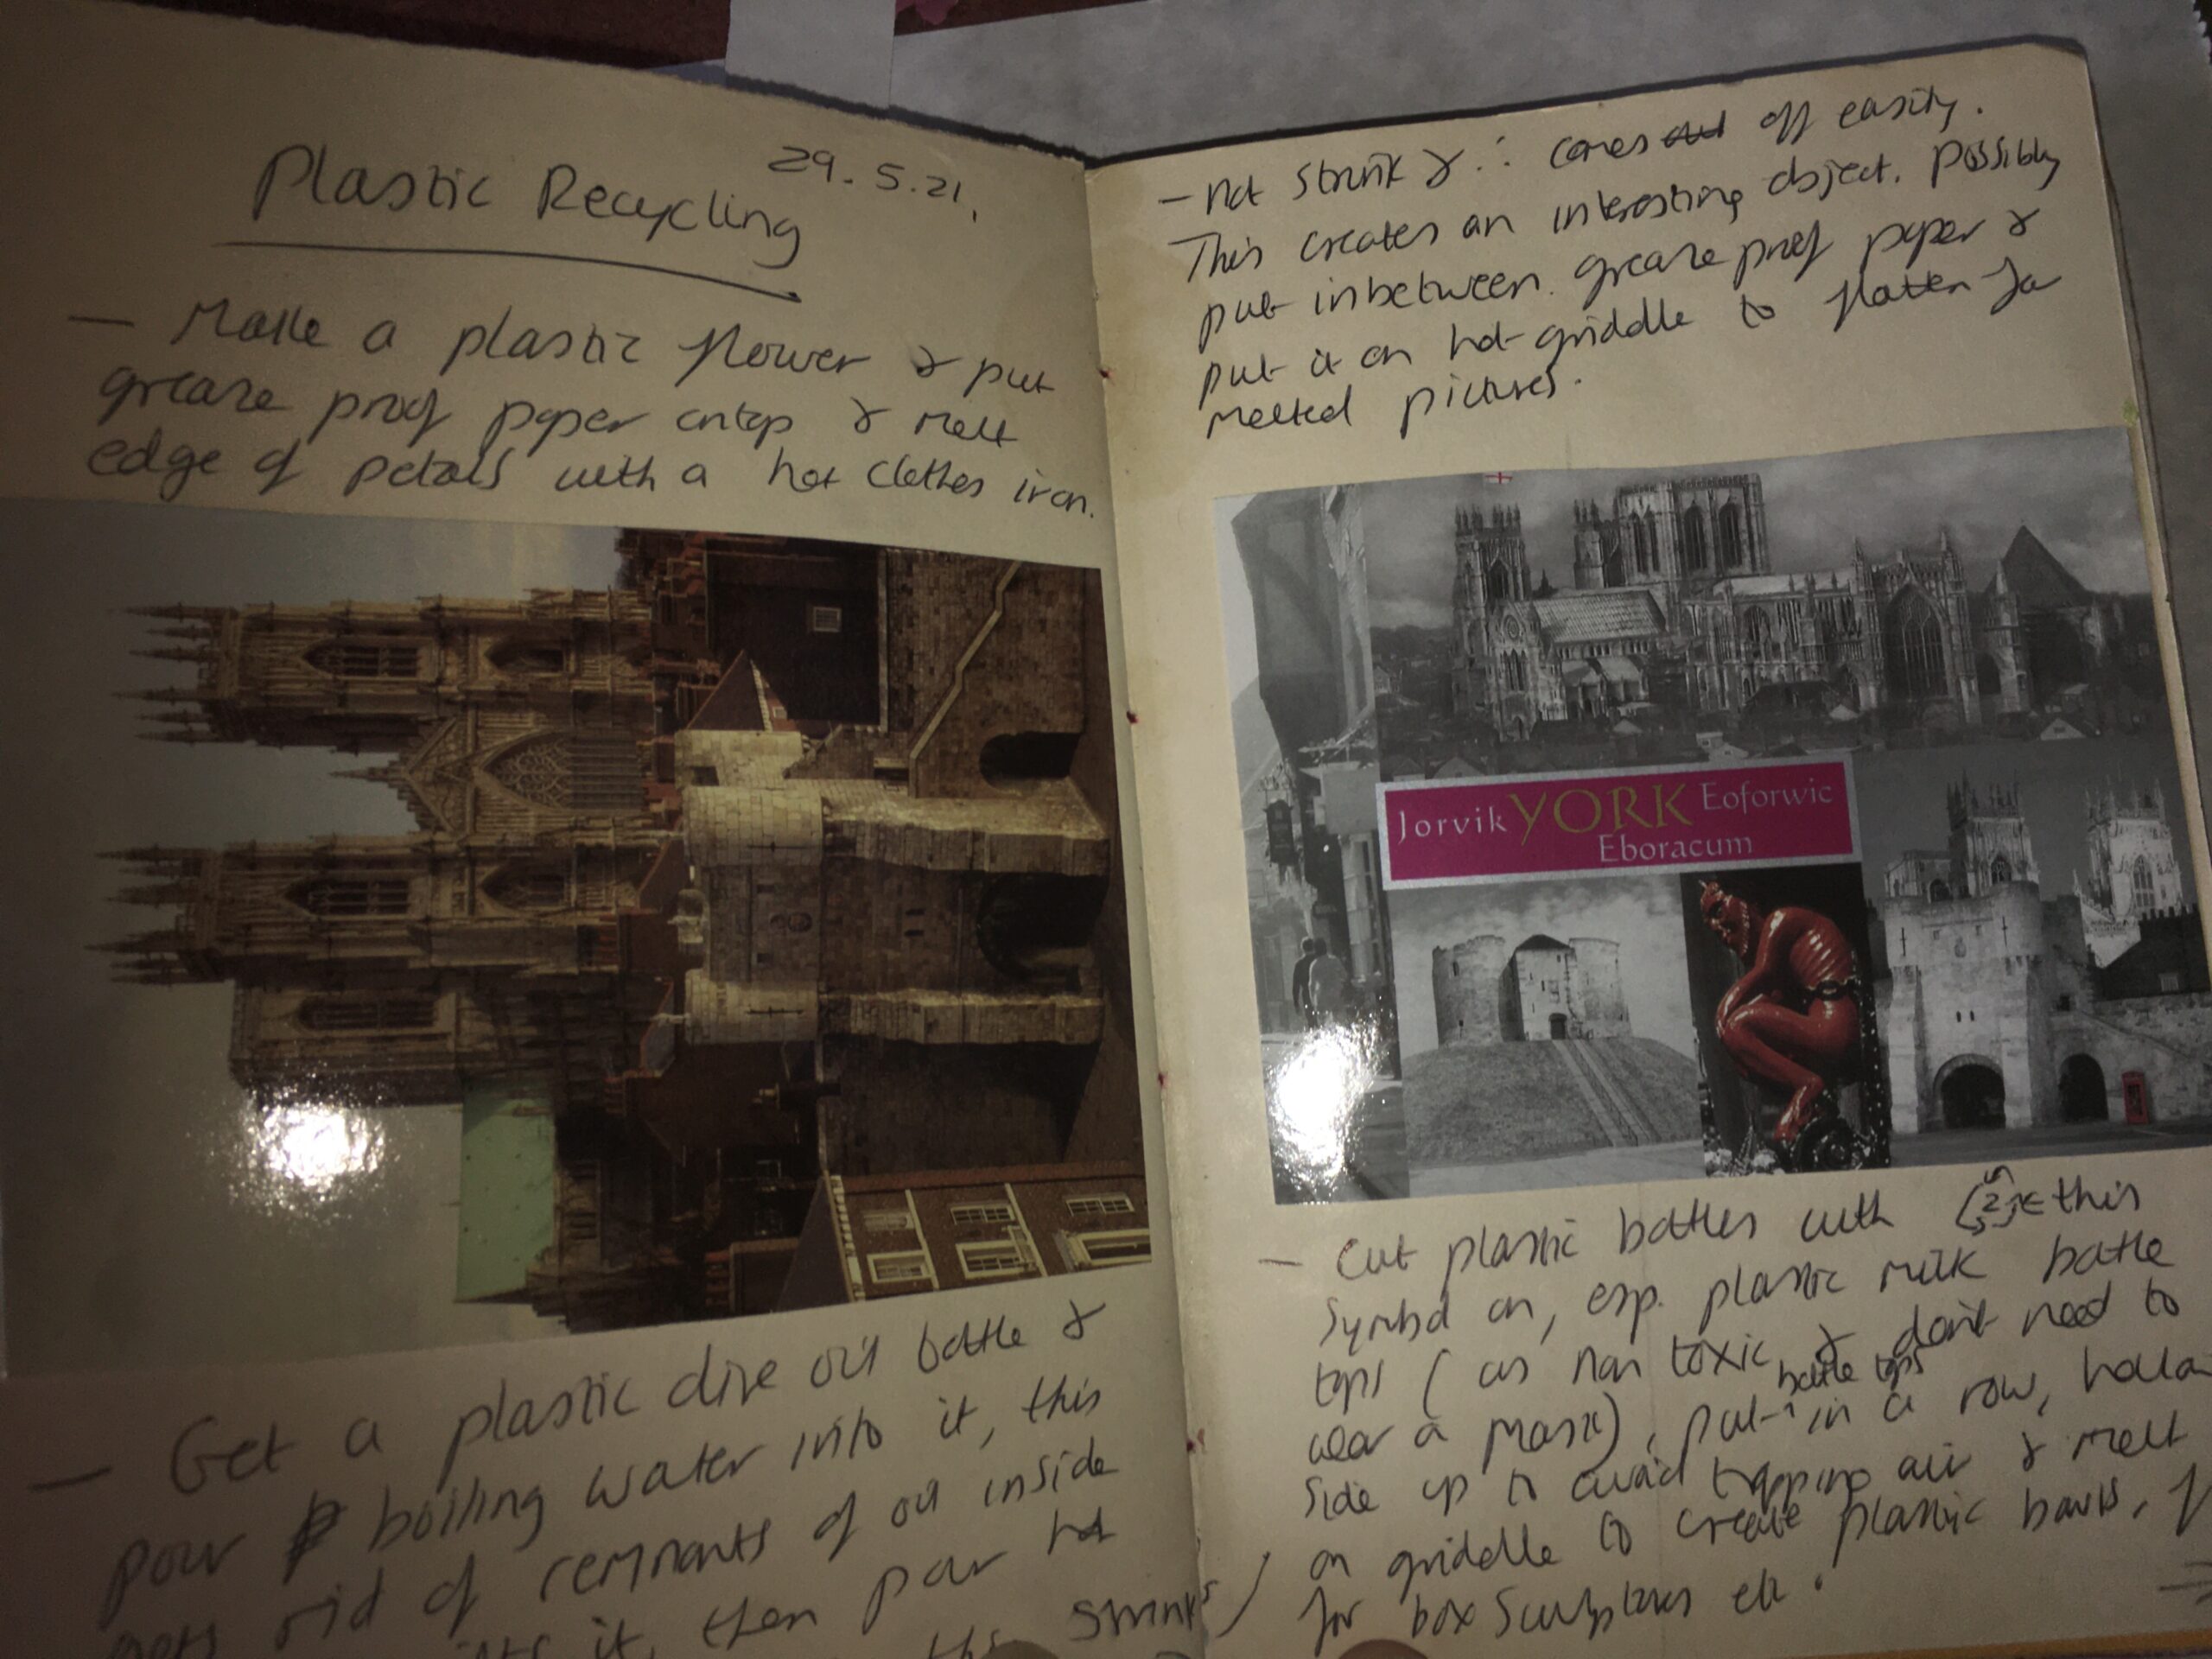 Plastic Recycling
29.5.21.
— Make a plastic flower & put
grease proof paper ontop & melt
edge of petals with a hot clothes iron.
— Get a plastic olive oil bottle &
pour boiling water into it, this
gets rid of remnants of oil inside
it, then pour hot
this shrinks
— not shrink & ∴ comes off easily.
This creates an interesting object. Possibly
put inbetween grease proof paper &
put it on hot griddle to flatten for
melted pictures.
Jorvik YORK Eoforwic
Eboracum
— Cut plastic bottles with 2 ← this
symbol on, esp. plastic milk bottle
tops (as non toxic & don't need to
wear a mask), put bottle tops in a row, hollow
side up to avoid trapping air & melt
on griddle to create plastic bowls,
for box sculptures etc.